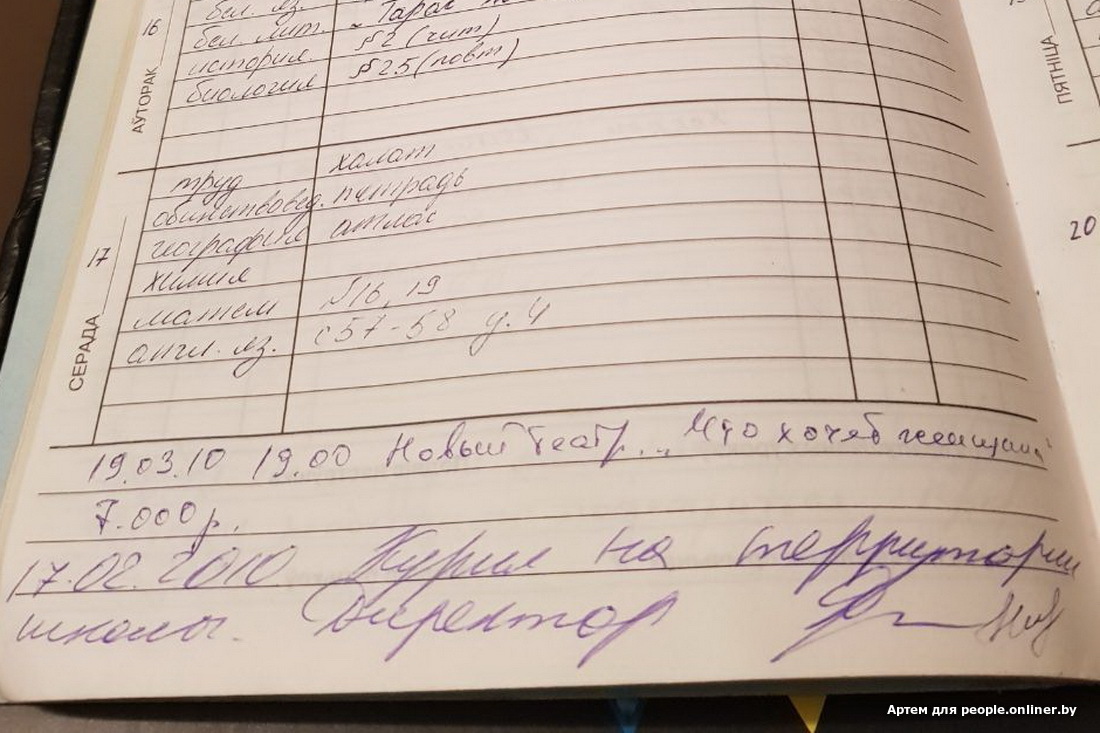 бел. яз.
16 бел. лит. „Тарас
история §2 (чит)
биология §25 (повт)
АЎТОРАК
ПЯТНІЦА
20
труд халат
обществовед. тетрадь
география атлас
17 химия
матем №16, 19
англ. яз. с57-58 у.4
СЕРАДА
19.03.10 19.00 Новый театр. „Что хочет женщина"
7.000р.
17.02.2010 Курил на территории
школы. Директор
Артем для people.onliner.by